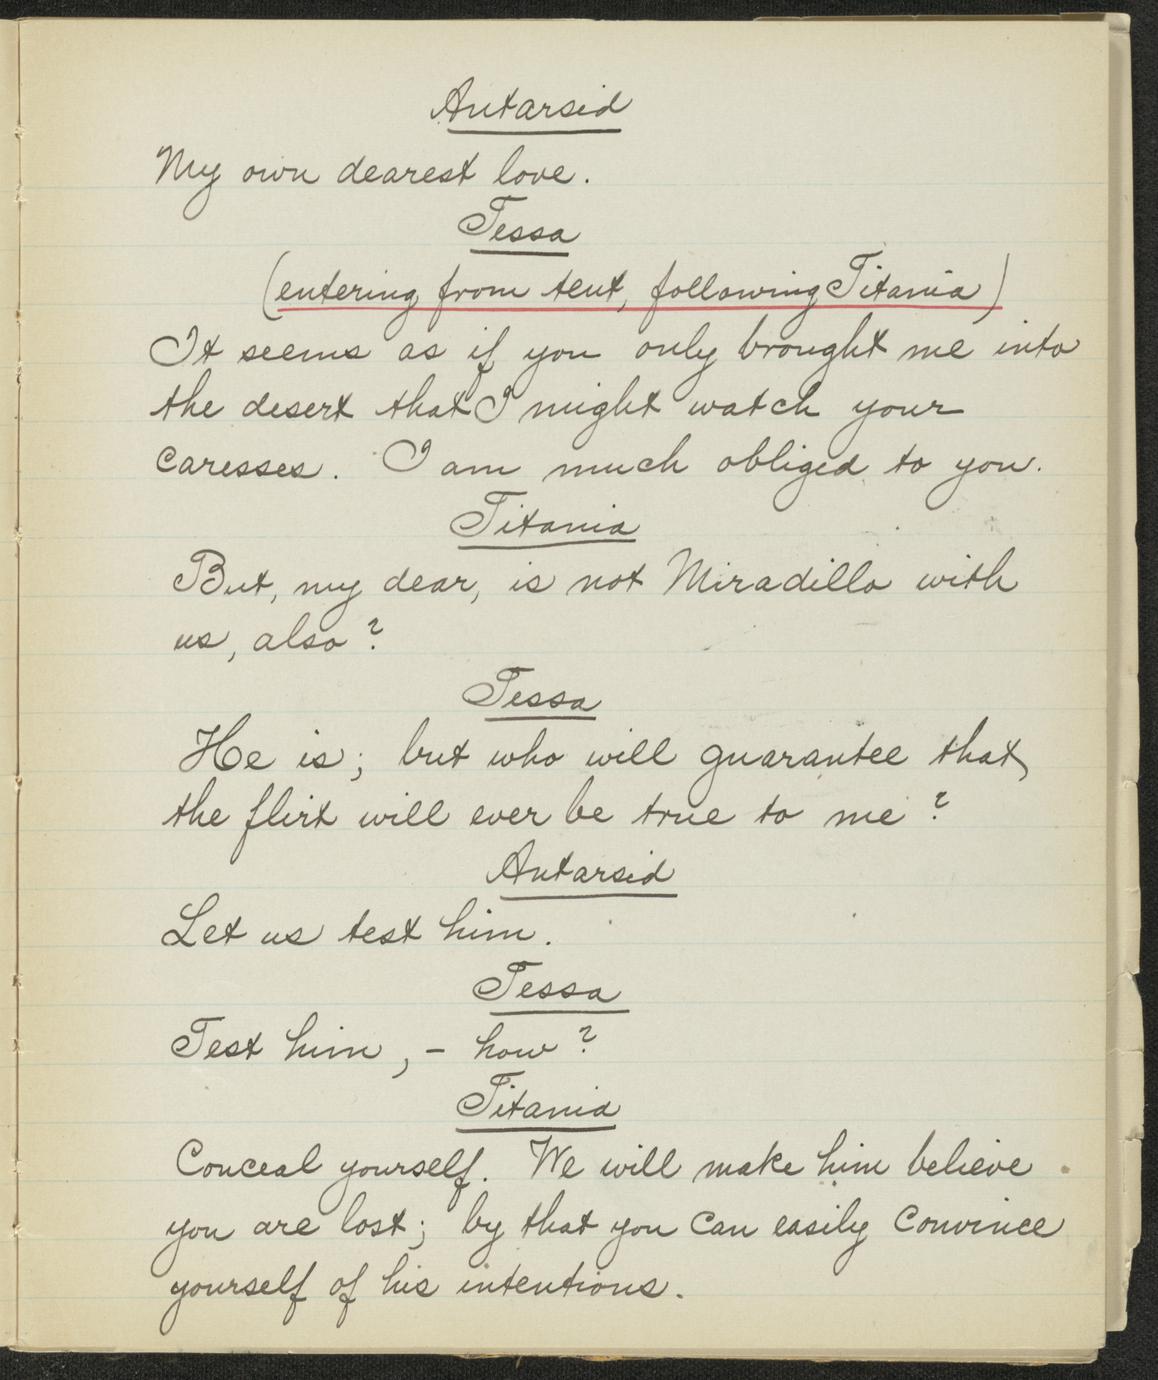 Antarsid
My own dearest love.
Tessa
(entering from tent, following Titania)
It seems as if you only brought me into
the desert that I might watch your
caresses. I am much obliged to you.
Titania
But, my dear, is not Miradillo with
us, also?
Tessa
He is; but who will guarantee that
the flirt will ever be true to me?
Antarsid
Let us test him.
Tessa
Test him, - how?
Titania
Conceal yourself. We will make him believe
you are lost; by that you can easily convince
yourself of his intentions.